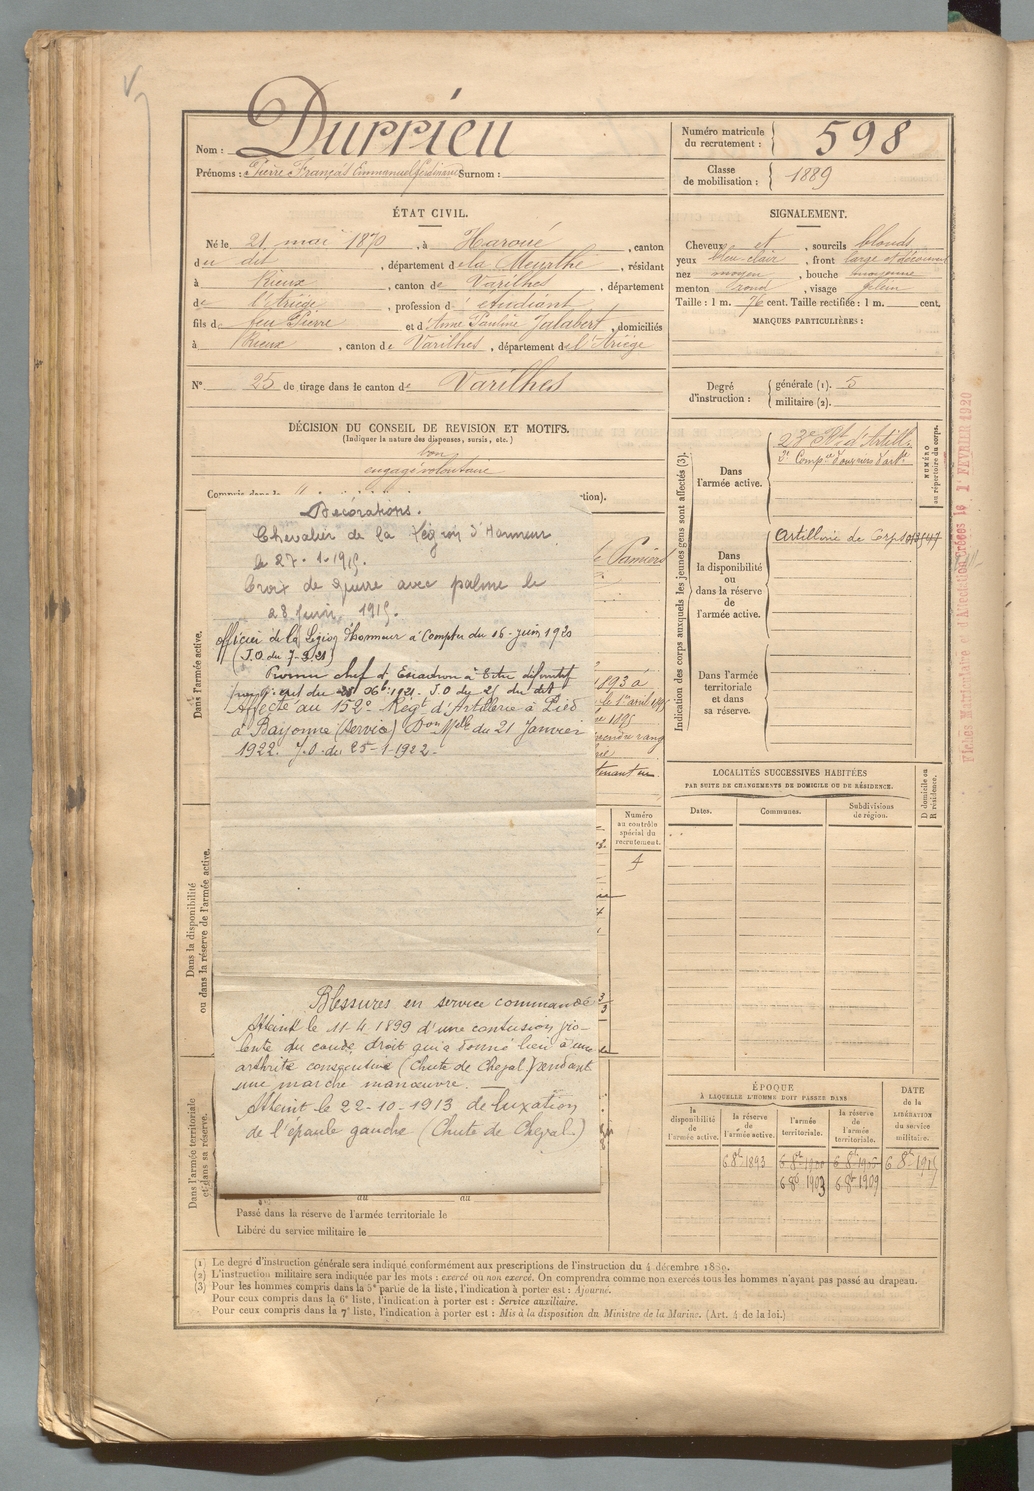 Nom : Durrieu
Prénoms : Pierre François Emmanuel Ferdinand Surnom :
Numéro matricule du recrutement : 598
Classe de mobilisation : 1889
ÉTAT CIVIL.
Né le 21 mai 1870, à Haroué, canton
du dit, département de la Meurthe, résidant
à Rieux, canton de Varilhes, département
de l'Ariège, profession d'étudiant
fils de feu Pierre et d'Anne Pauline Jalabert, domiciliés
à Rieux, canton de Varilhes, département de l'Ariège
N° 25 de tirage dans le canton de Varilhes
SIGNALEMENT.
Cheveux et, sourcils blonds
yeux bleu-clair, front large et découvert
nez moyen, bouche moyenne
menton rond, visage plein
Taille : 1 m. 76 cent. Taille rectifiée : 1 m. cent.
MARQUES PARTICULIÈRES :
Degré d'instruction : générale (1). 5
militaire (2).
DÉCISION DU CONSEIL DE REVISION ET MOTIFS.
(Indiquer la nature des dispenses, sursis, etc.)
bon
engagé volontaire
Compris dans la
tion).
Indication des corps auxquels les jeunes gens sont affectés (3).
Dans l'armée active.
23e Rt d'Artill.
3e Compie d'ouvriers d'artie
NUMÉRO au répertoire du corps.
Dans la disponibilité ou dans la réserve de l'armée active.
Artillerie de Corps
Dans l'armée territoriale et dans sa réserve.
Fiches Matricule et d'Affectation créées le 1 FEVRIER 1920
Décorations.
Chevalier de la Légion d'Honneur
le 27. 1. 1915.
Croix de guerre avec palme le
28 Juin 1915.
officier de la Légion d'honneur à Compter du 16 - juin 1920
Promu chef d'Escadron à titre définitif
Affecté au 152e Régt d'Artillerie à Pied
à Bayonne (Service) Don Mlle du 21 Janvier
1922. J.O. du 25-1-1922.
Blessures en service commandé
Atteint le 11-4-1899 d'une contusion vio-
lente du coude droit qui a donné lieu à une
arthrite consécutive (Chute de Cheval) pendant
une marche manœuvre.
Atteint le 22-10-1913 de luxation
de l'épaule gauche (Chute de Cheval.)
Pamiers
1893 à
le 1er avril 1895
Dans l'armée active.
Dans la disponibilité
ou dans la réserve de l'armée active.
Dans l'armée territoriale
et dans sa réserve.
Numéro
au contrôle
spécial du
recrutement.
4
LOCALITÉS SUCCESSIVES HABITÉES
PAR SUITE DE CHANGEMENTS DE DOMICILE OU DE RÉSIDENCE.
Dates.
Communes.
Subdivisions de région.
D domicile ou R résidence.
ÉPOQUE
À LAQUELLE L'HOMME DOIT PASSER DANS
la disponibilité de l'armée active.
la réserve de l'armée active.
l'armée territoriale.
la réserve de l'armée territoriale.
DATE de la LIBÉRATION du service militaire.
6 8t 1893
6 8t 1903
6 8t 1909
du au
Passé dans la réserve de l'armée territoriale le
Libéré du service militaire le
(1) Le degré d'instruction générale sera indiqué conformément aux prescriptions de l'instruction du 4 décembre 1889.
(2) L'instruction militaire sera indiquée par les mots : exercé ou non exercé. On comprendra comme non exercés tous les hommes n'ayant pas passé au drapeau.
(3) Pour les hommes compris dans la 5e partie de la liste, l'indication à porter est : Ajourné.
Pour ceux compris dans la 6e liste, l'indication à porter est : Service auxiliaire.
Pour ceux compris dans la 7e liste, l'indication à porter est : Mis à la disposition du Ministre de la Marine. (Art. 4 de la loi.)